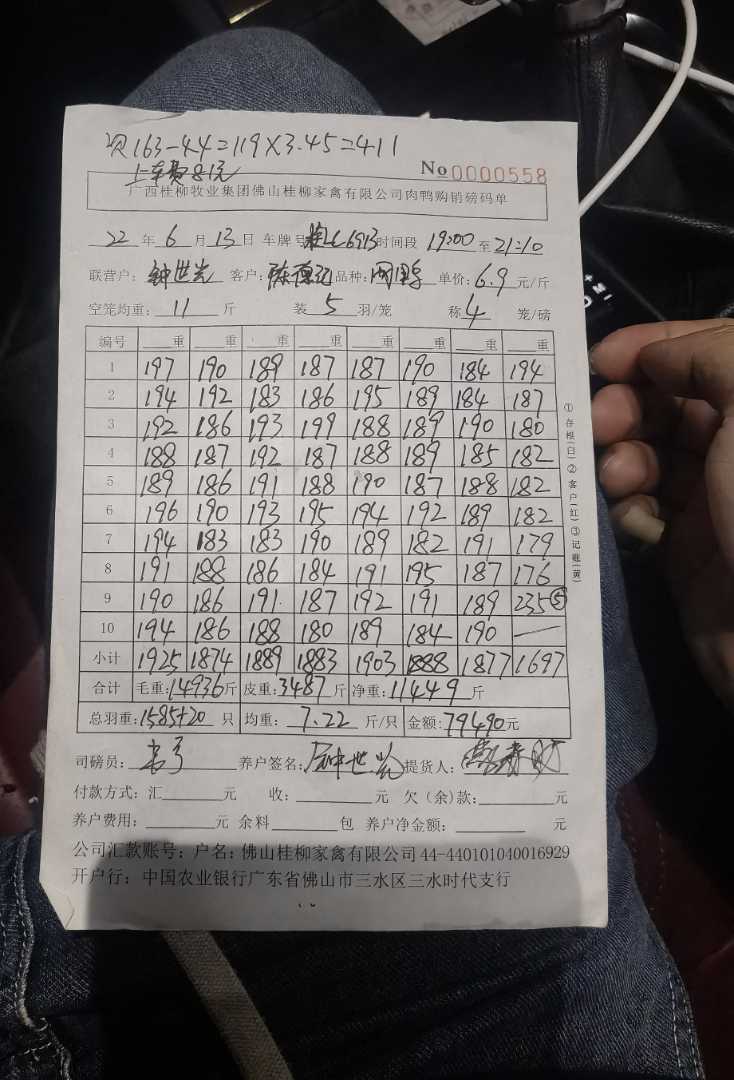 163-44=119×3.45=411
上车费81元
No 0000558
广西桂柳牧业集团佛山桂柳家禽有限公司肉鸭购销磅码单
22 年 6 月 13 日 车牌号 L6913 时间段 19:00 至 21:10
联营户: 钟世光 客户: 品种: 单价: 6.9 元/斤
空笼均重: 11 斤 装 5 羽/笼 称 4 笼/磅
编号 重 重 重 重 重 重 重 重
1 197 190 189 187 187 190 184 194
2 194 192 183 186 195 189 184 187
3 192 186 193 199 188 189 190 180
4 188 187 192 187 188 189 185 182
5 189 186 191 188 190 187 188 182
6 196 190 193 195 194 192 189 182
7 194 183 183 190 189 182 191 179
8 191 188 186 184 191 195 187 176
9 190 186 191 187 192 191 189 235⑤
10 194 186 188 180 189 184 190 —
小计 1925 1874 1889 1883 1903 1888 1877 1697
合计 毛重: 14936 斤 皮重: 3487 斤 净重: 11449 斤
总羽重: 1585+20 只 均重: 7.22 斤/只 金额: 79490 元
司磅员: 养户签名: 钟世光 提货人:
付款方式: 汇 元 收: 元 欠(余)款: 元
养户费用: 元 余料 包 养户净金额: 元
公司汇款账号: 户名: 佛山桂柳家禽有限公司 44-440101040016929
开户行: 中国农业银行广东省佛山市三水区三水时代支行
①存根(白)②客户(红)③记账(黄)